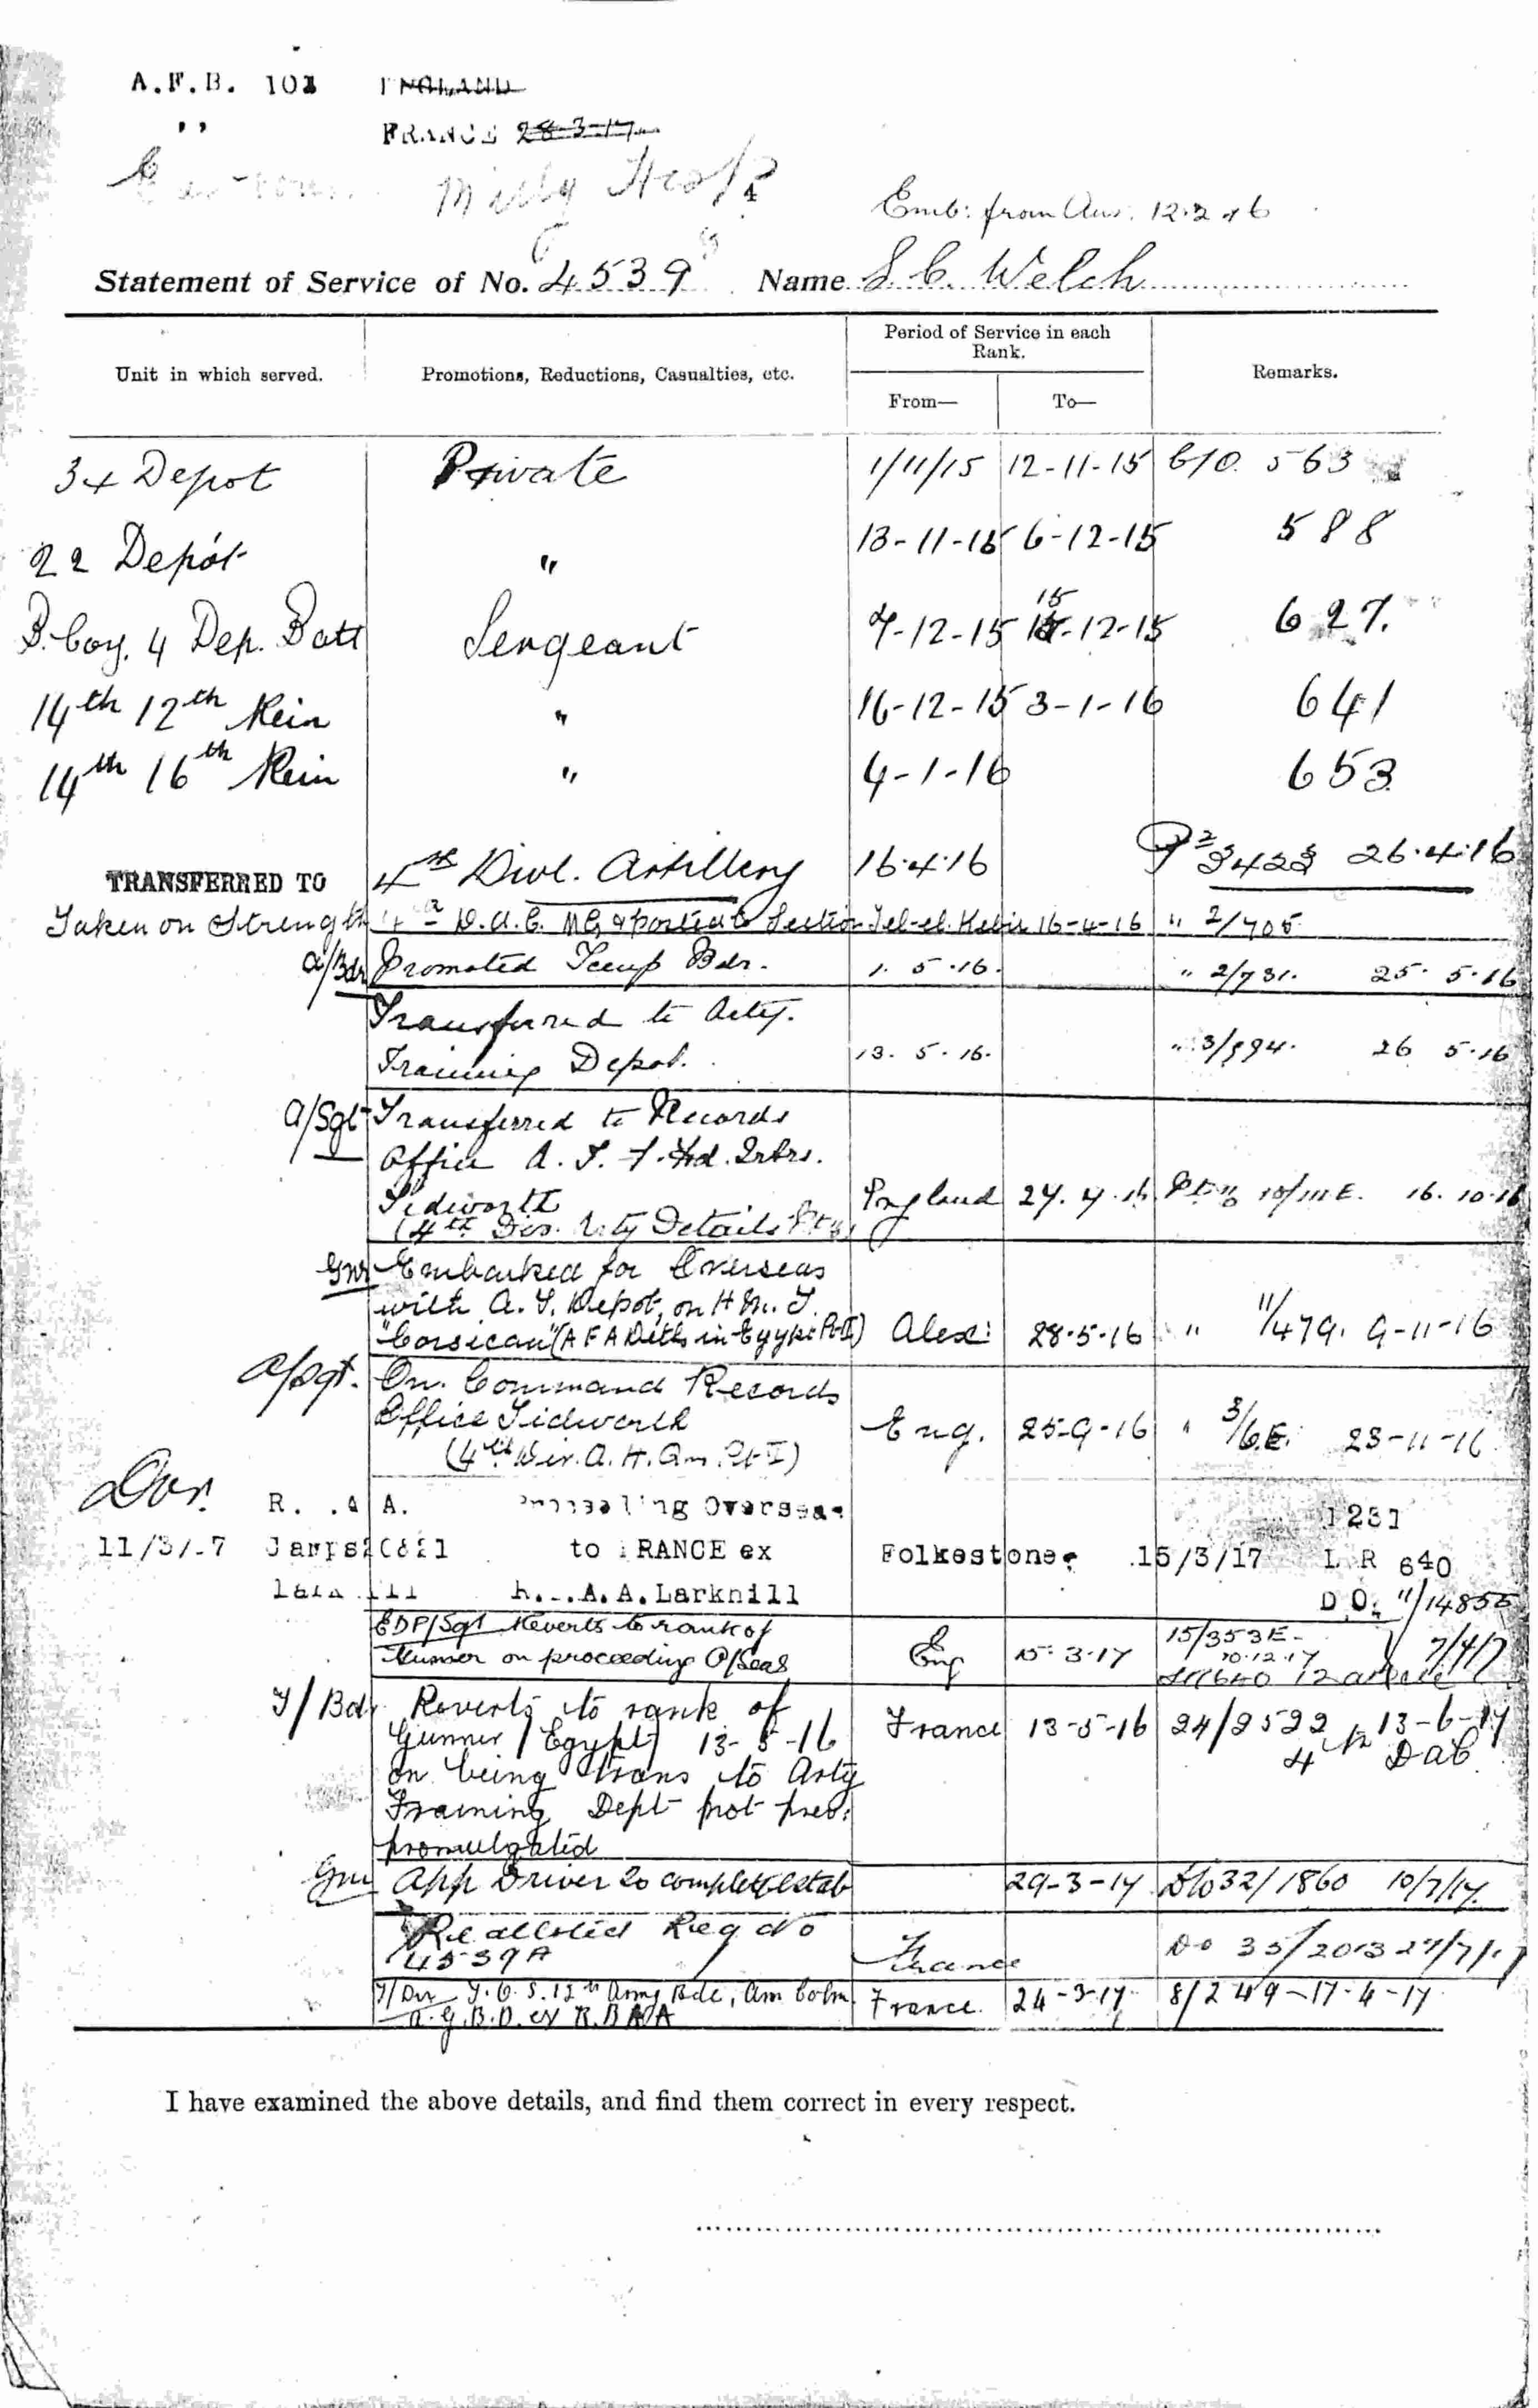 A.F.B. 103 ENGLAND
,, FRANCE 28-3-17
Milly Hosp
Emb: from Aus. 12.2.16
Statement of Service of No. 4539 Name S. C. Welch
Period of Service in each
Rank.
Unit in which served. Promotions, Reductions, Casualties, etc. Remarks.
From— To—
34 Depot Private 1/11/15 12-11-15 C/O. 563
22 Depôt " 13-11-15 6-12-15 588
B. Coy. 4 Dep. Batt Sergeant 7-12-15 15-12-15 627.
14th 12th Rein " 16-12-15 3-1-16 641
14th 16th Rein " 4-1-16 653
TRANSFERRED TO 4th Divl. Artillery 16.4.16 26.4.16
Taken on Strength 4th D.A.C. Section Tel-el-Kebir 16-4-16 " 2/705
a/Bdr Promoted Temp Bdr. 1. 5. 16. " 2/731. 25. 5. 16
Transferred to Arty.
Training Depot. 13. 5. 16. " 3/894. 26 5. 16
a/Sgt Transferred to Records
Office A. I. F. Hd. Qrtrs.
Tidworth England
(4th Div. Arty Details Pt II) 16. 10. 16
Gnr Embarked for Overseas
with A. T. Depot, on H.M.T.
"Corsican" (A F A Detls in Egypt Pt II) Alex: 28.5.16 " 11/479. 9-11-16
a/Sgt. On Command Records
Office Tidworth Eng. 25-9-16 " 3/6.E. 23-11-16
Dvr.
R. . A A. Proceeding Overseas 1231
to FRANCE ex Folkestone. 15/3/17 L R 640
R..A.A. Larkhill D.O. 11/14855
EDP/Sgt Reverts to rank of
Gunner on proceeding O/Seas Eng 15.3.17 15/353E- 10.12.17 7/4/17
T/Bdr Reverts to rank of
Gunner (Egypt) 13-5-16 France 13-5-16 24/2522 13-6-17
on being trans to Arty 4th DAC
Training Dept not prev.
promulgated
Gnr App Driver to complete estab 29-3-17 DO 32/1860 10/7/17.
Reallotted Reg No
4539A France DO 35/2013 27/7/17
T/Dvr T.O.S. 12th Army Bde, Am Colm France. 24-3-17. 8/249-17-4-17
A.G.B.D. ex R.B.A.A
I have examined the above details, and find them correct in every respect.